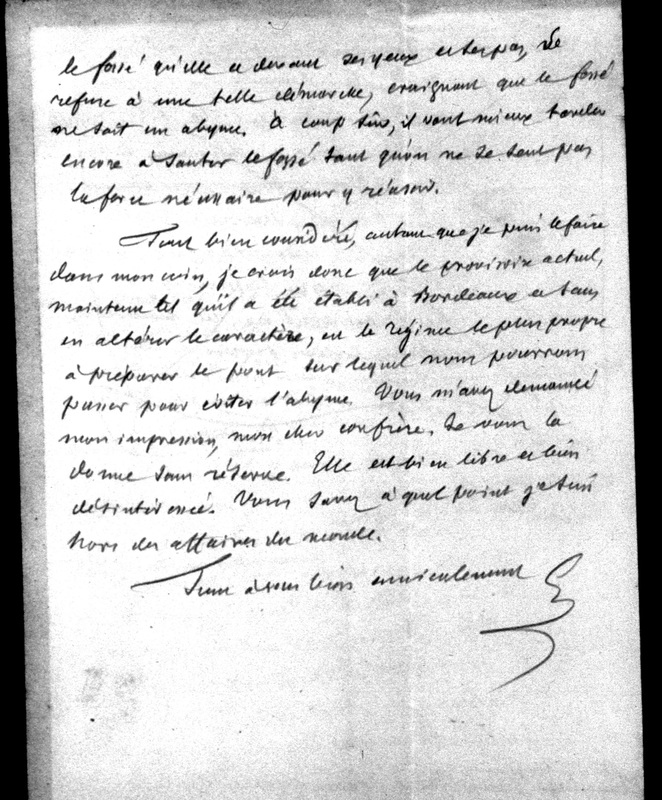 le fossé qu'elle a devant ses yeux et ses pas, se
refuse à une telle démarche, craignant que le fossé
ne soit un abyme. à coup sûr, il vaut mieux tarder
encore à sauter le fossé tant qu'on ne se sent pas
la force nécessaire pour y réussir.
Tout bien considéré, autant que je puis le faire
dans mon coin, je crois donc que le provisoire actuel,
maintenu tel qu'il a été établi à Bordeaux et sans
en altérer le caractère, est le régime le plus propre
à préparer le pont sur lequel nous pourrons
passer pour éviter l'abyme. Vous m'avez demandé
mon impression, mon cher confrère. Je vous la
donne sans réserve. Elle est bien libre et bien
désintéressée. Vous savez à quel point je suis
hors des affaires du monde.
Tout à vous bien amicalement